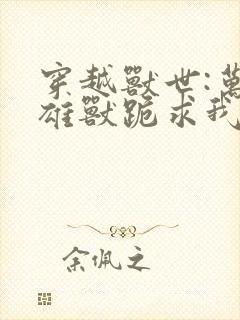 穿越獸世:萬
雄獸跪求我
余佩之